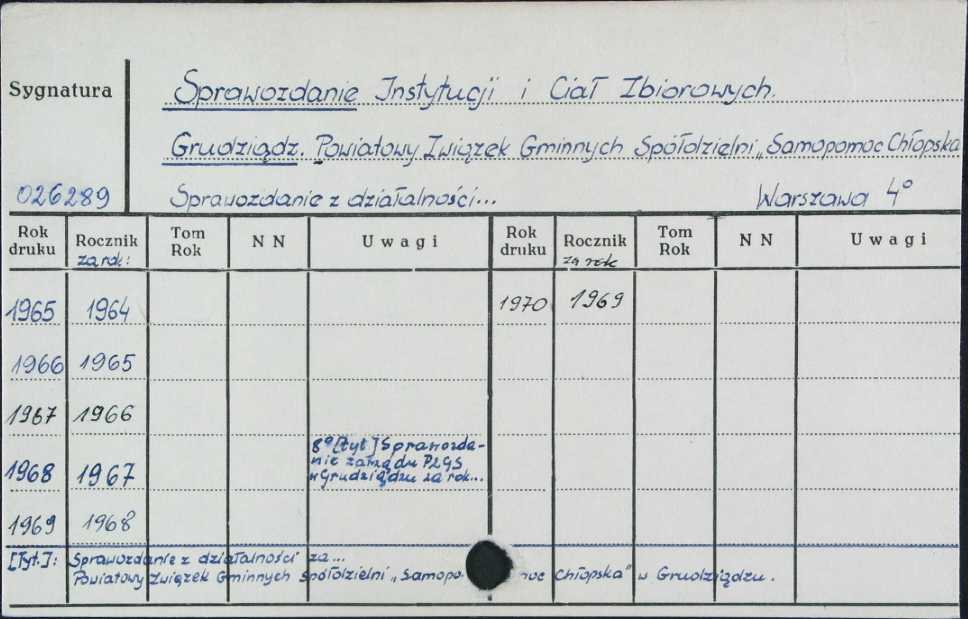 Sygnatura
Sprawozdanie Instytucji i Ciał Zbiorowych.
Grudziądz. Powiatowy Związek Gminnych Spółdzielni „Samopomoc Chłopska
026289 Sprawozdanie z działalności... Warszawa 4°
Rok druku Rocznik za rok: Tom Rok NN Uwagi Rok druku Rocznik za rok Tom Rok NN Uwagi
1965 1964 1970 1969
1966 1965
1967 1966
1968 1967 8° [tyt] Sprawozda-
nie zarządu PZGS
w Grudziądzu za rok...
1969 1968
[Tyt.]: Sprawozdanie z działalności za...
Powiatowy Związek Gminnych Spółdzielni „Samopo moc Chłopska" w Grudziądzu.